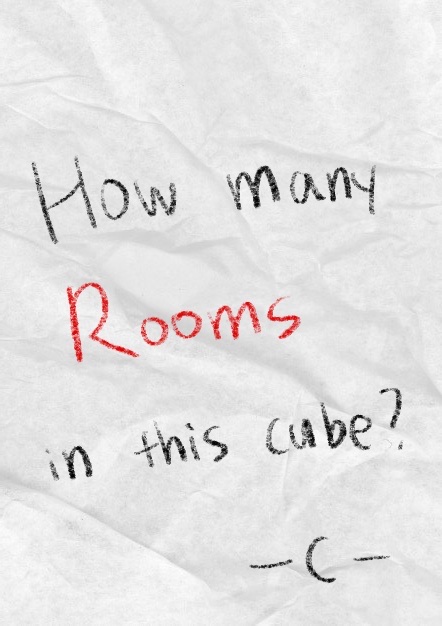 How many
Rooms
in this cube?
-C-